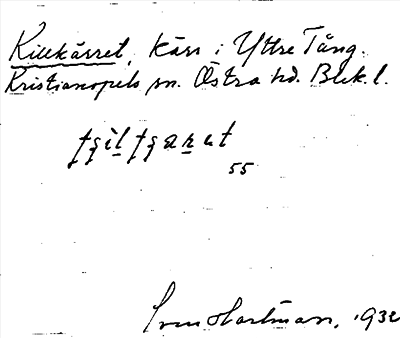 Killkärret, kärr i Yttre Tång.
Kristianopels sn. Östra hd. Blek. l.
55
Sven Hartman, 1932